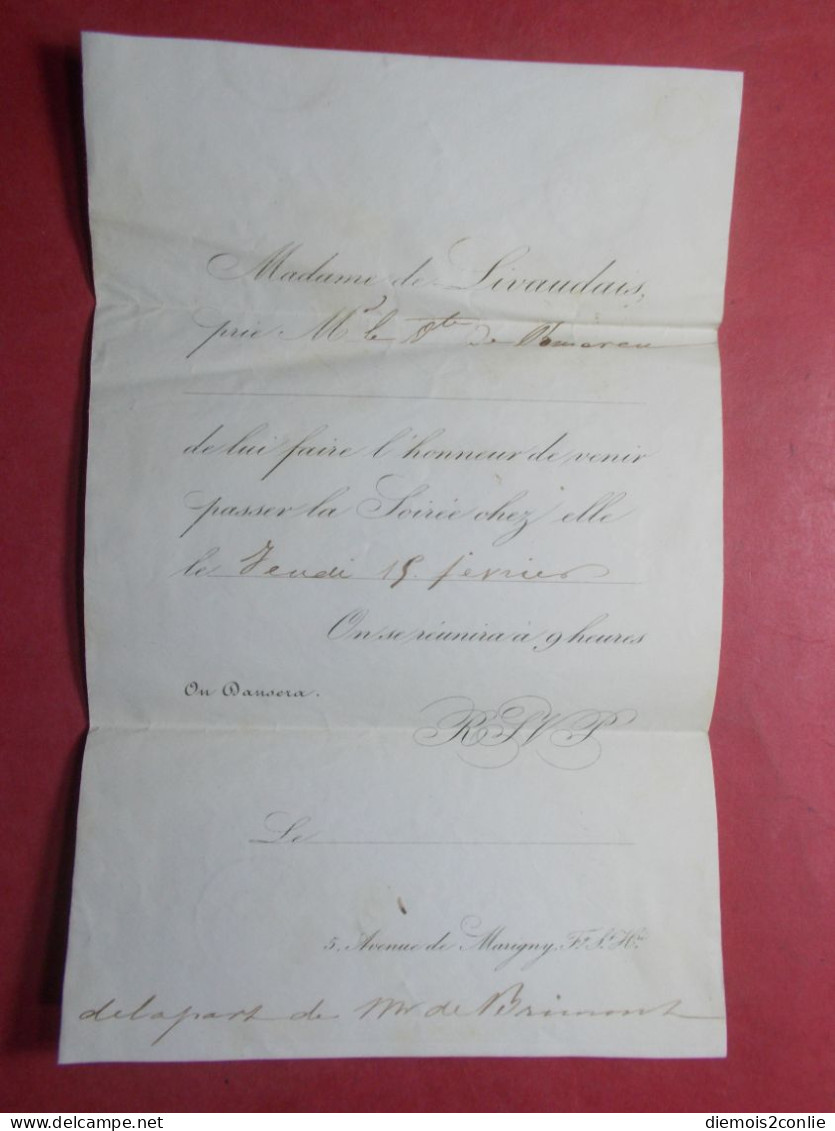 Madame de Livaudais,
prie Mr le Vte de
de lui faire l'honneur de venir
passer la Soirée chez elle
le Jeudi 15 fevrier
On se réunira à 9 heures
On Dansera.
RSVP
Le
5, Avenue de Marigny, Fg St Hé
de la part de Mr de Brimont
delcampe.net
diemois2conlie